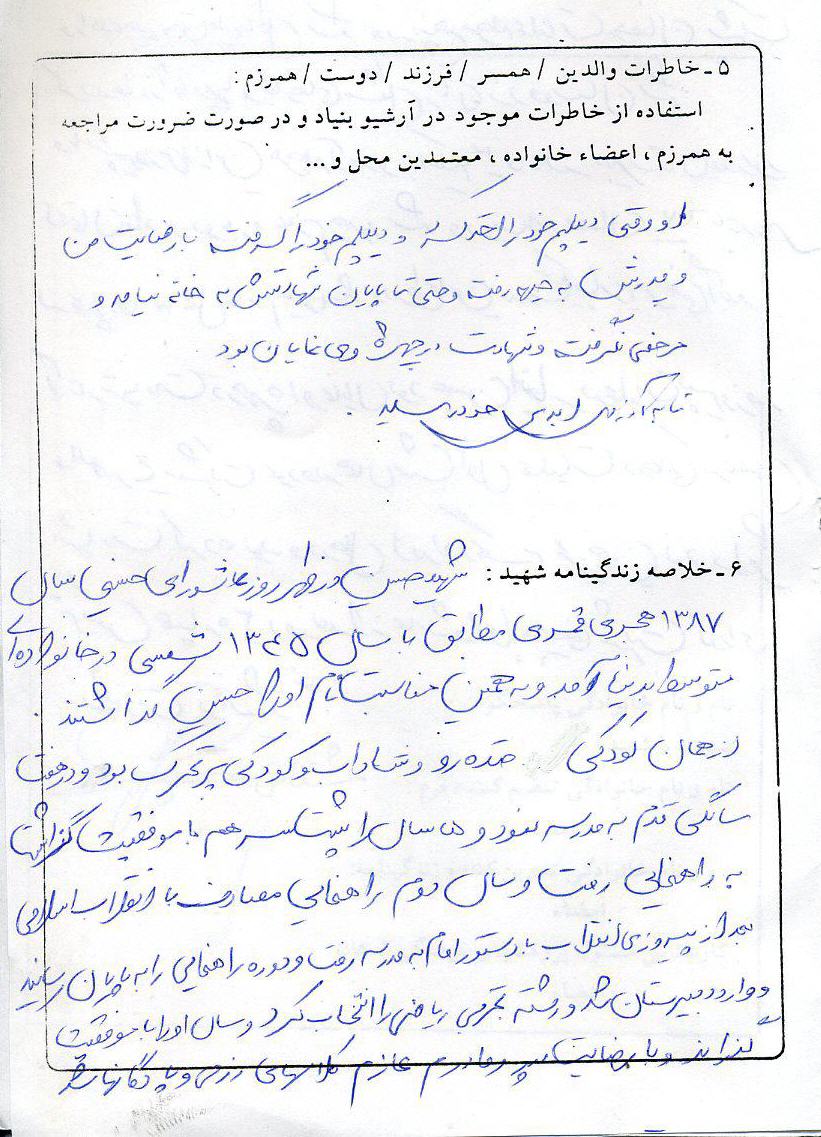 ۵ ـ خاطرات والدین / همسر / فرزند / دوست / همرزم :
استفاده از خاطرات موجود در آرشیو بنیاد و در صورت ضرورت مراجعه
به همرزم ، اعضاء خانواده ، معتمدین محل و ...
او وقتی دیپلم خود را و دیپلم خود را گرفت با رضایت من
و پدرش به جبهه رفت و حتی تا پایان شهادتش به خانه نیامد و
مرخصی نگرفت و شهادت در چهره وی نمایان بود
تا به آرزوی ابدی خود رسید .
۶ ـ خلاصه زندگینامه شهید : شهید حسین در ظهر روز عاشورای حسینی سال
۱۳۸۷ هجری قمری مطابق با سال ۱۳۴۵ شمسی در خانواده‌ای
متوسط بدنیا آمد و به همین مناسبت نام او را حسین گذاشتند .
از همان کودکی خنده رو و شاداب و کودکی پر تحرک بود و در هفت
سالگی قدم به مدرسه نمود و ۵ سال را پشت سر هم با موفقیت گذراند
به راهنمایی رفت و سال دوم راهنمایی مصادف با انقلاب اسلامی
بعد از پیروزی انقلاب با دستور امام به مدرسه رفت و دوره راهنمایی را به پایان رسانید
و وارد دبیرستان شد و رشته تجربی ریاضی را انتخاب کرد و سال اول را با موفقیت
گذراند و با رضایت پدر و مادرم عازم کلاسهای رزمی و پادگانها شد